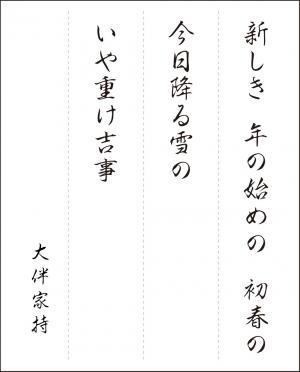 新しき 年の始めの 初春の
今日降る雪の
いや重け吉事
大伴家持